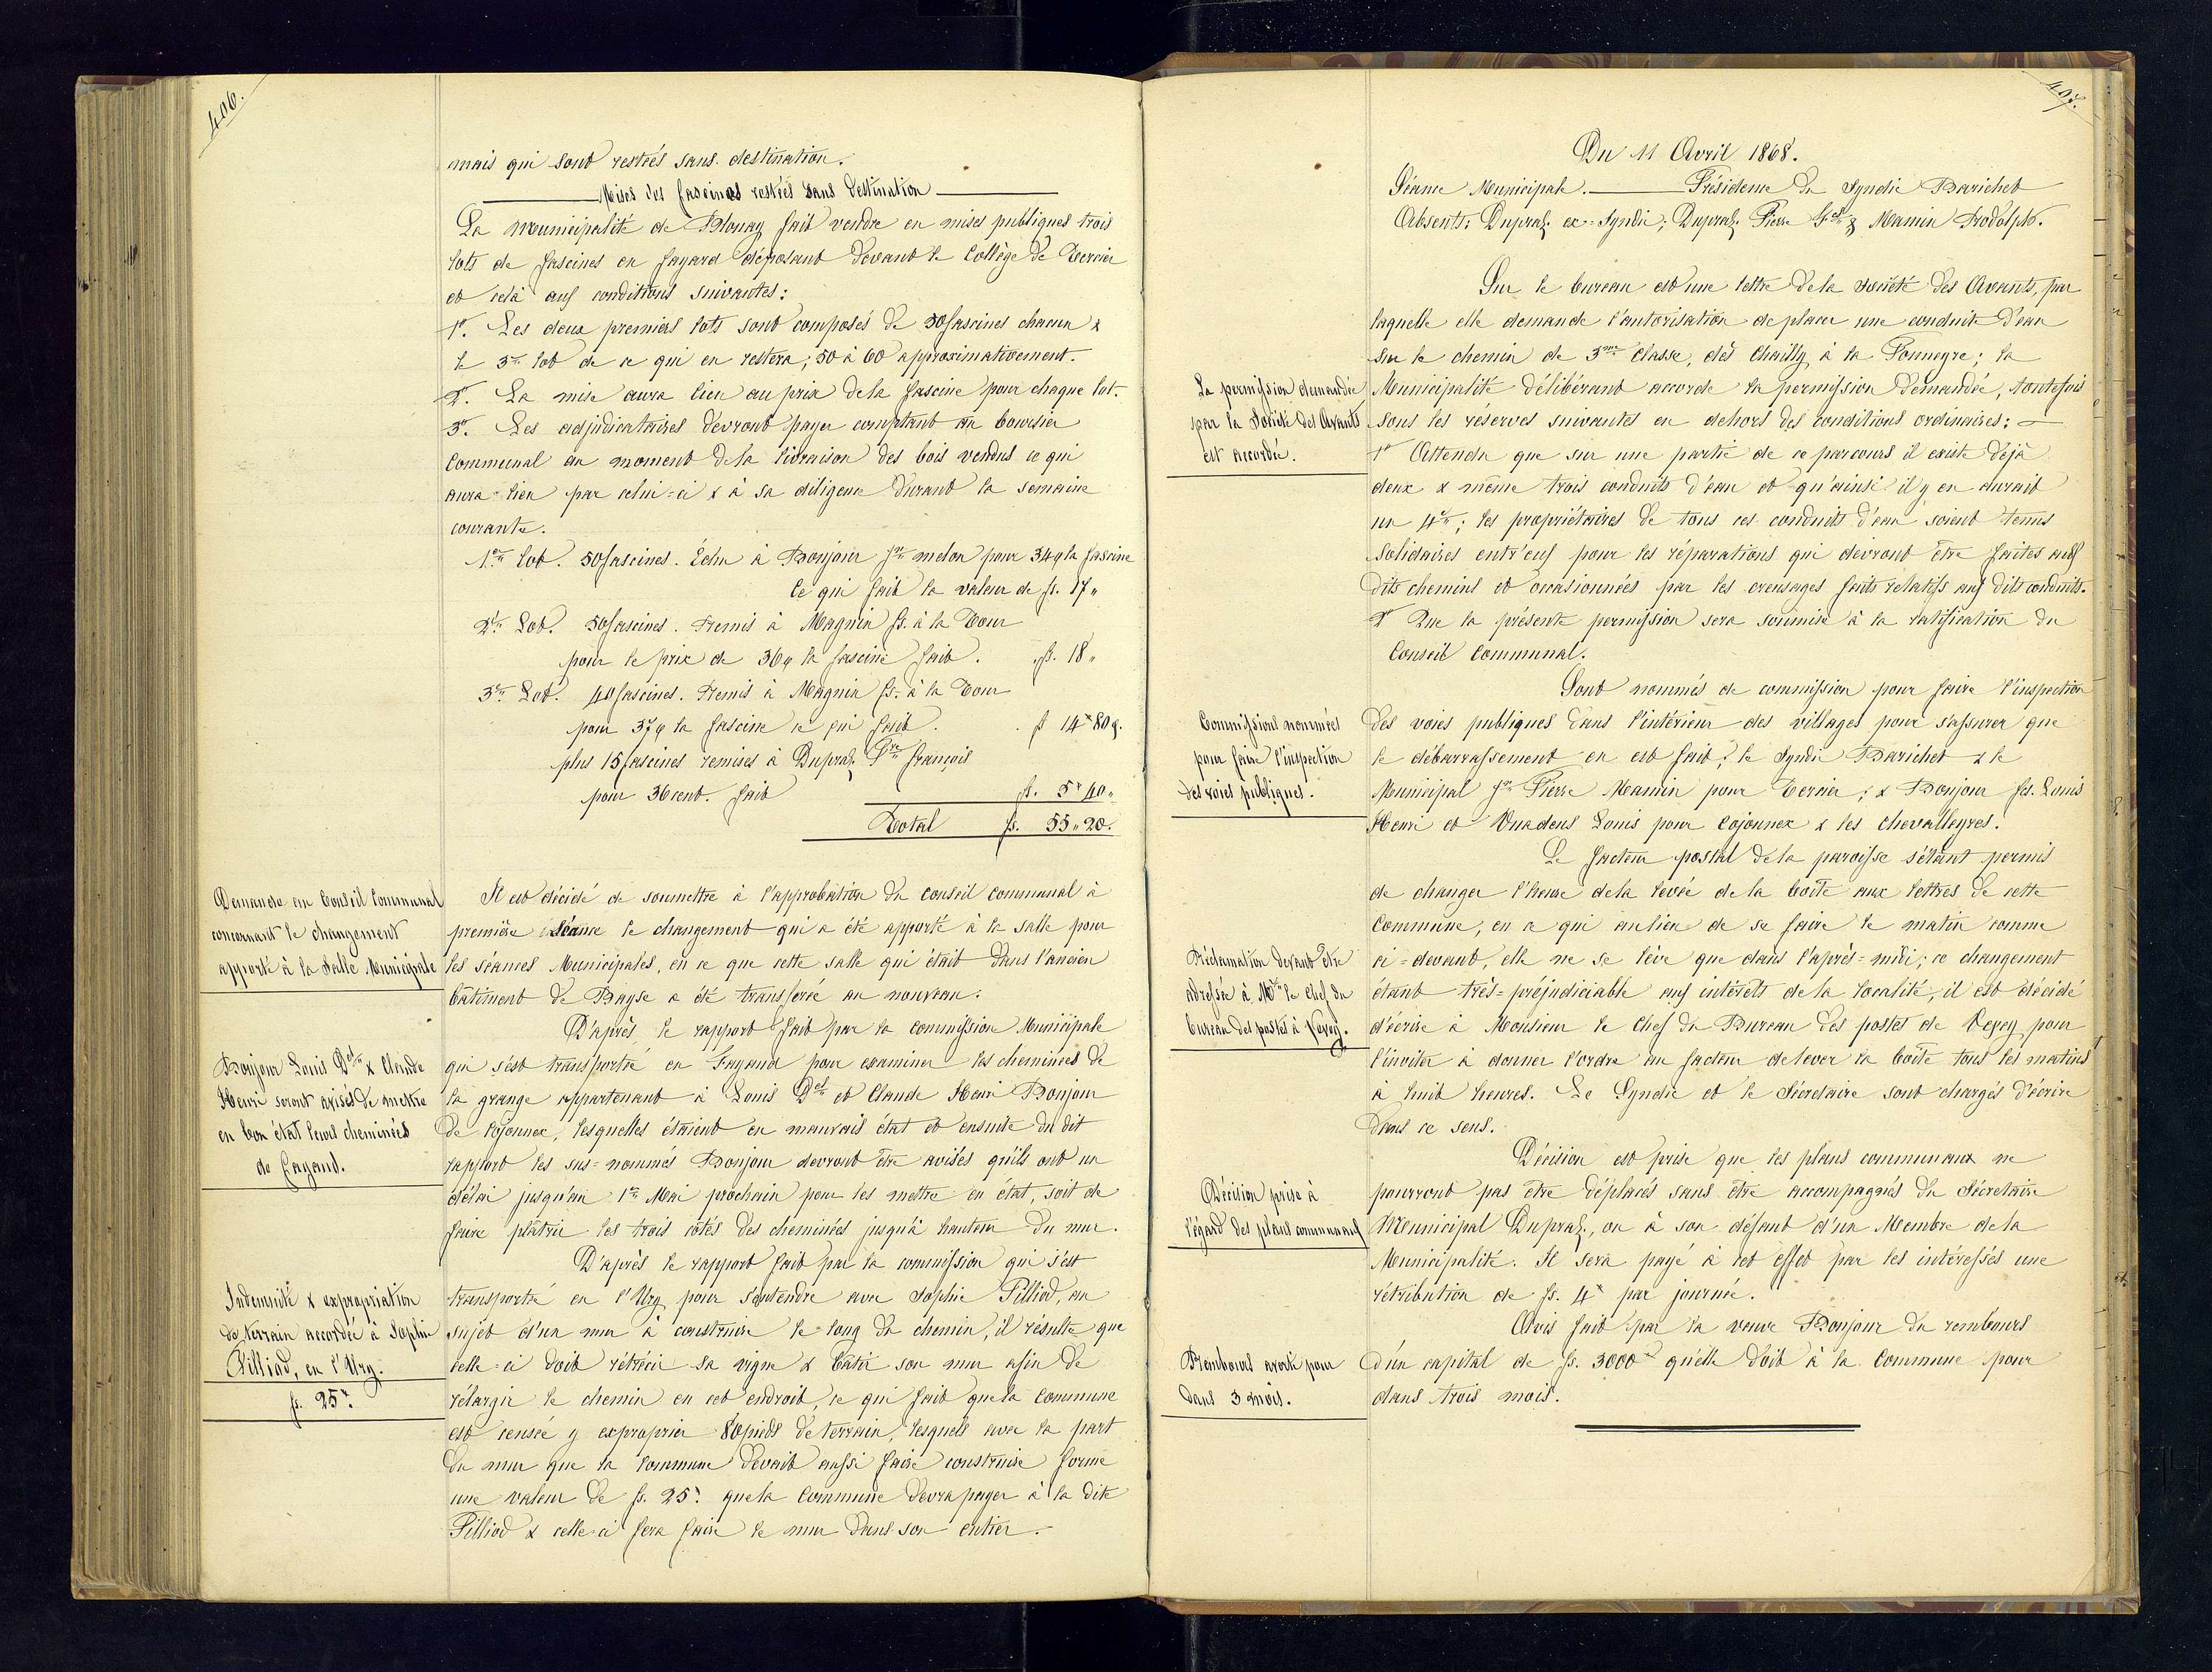 406.
mais qui sont restées sans destination.
Mises des fascines restées sans destination
La municipalité de Blonay fait vendre en mises publiques trois
lots de fascines en fayard déposant devant le Collège de Tercier
et celà aux conditions suivantes:
1°. Les deux premiers lots sont composés de 50 fascines chacun &
le 3me lot de ce qui en restera; 50 à 60 approximativement.
2°. La mise aura lieu au prix de la fascine pour chaque lot.
3°. Les adjudicataires devront payer comptant au boursier
Communal au moment de la livraison des bois vendus ce qui
aura-lieu par celui=ci & à sa diligence durant la semaine
courante.
1er Lot. 50 fascines. Échu à Bonjour melon pour 34 la fascine
Ce qui fait la valeur de fs. 17 "
2e Lot. 50 fascines. Remis à Magnin fs. à la Tour
pour le prix de 36 la fascine fait. fs. 18 "
3e Lot. 40 fascines. Remis à Magnin fs. à la Tour
pour 37 la fascine ce qui fait. f 14 80
plus 15 fascines remises à Dupraz Pre françois
pour 36 cent. fait fs. 5 40 "
Total fs. 55 " 20.
Demande au Conseil Communal
concernant le changement
apporté à la Salle Municipale
Il est décidé de soumettre à l'approbation du Conseil communal à
première séance le changement qui a été apporté à la salle pour
les séances Municipales, en ce que cette salle qui était dans l'ancien
bâtiment de Bayse a été transferée au nouveau.
Bonjour Louis Del & Claude
Henri seront avisés de mettre
en bon état leurs cheminées
de Cayaud.
D'après le rapport fait par la commission Municipale
qui s'est transportée en Fayaud pour examiner les cheminées de
la grange appartenant à Louis Del et Claude Henri Bonjour
de Cojonnex, lesquelles étaient en mauvais état et ensuite du dit
rapport les sus=nommés Bonjour devront être avisés qu'ils ont un
délai jusqu'au 1er Mai prochain pour les mettre en état, soit de
faire plâtrir les trois côtés des cheminées jusqu'à hauteur du mur.
Indemnité & expropriation
de terrain accordée à Sophie
Pilliod, en l'Urg.
fs. 25.
D'après le rapport fait par la commission qui s'est
transportée en l'Urg pour s'entendre avec Sophie Pilliod, au
sujet d'un mur à construire le long du chemin, il résulte que
celle-ci doit rétrécir sa vigne & bâtir son mur afin de
rélargir le chemin en cet endroit, ce qui fait que la Commune
est censée y exproprier 80 pieds de terrain, lesquels avec la part
du mur que la Commune devait aussi faire construire forme
une valeur de fs. 25. que la Commune devra payer à la dite
Pilliod & celle-ci fera faire le mur dans son entier.
407.
Du 11 Avril 1868.
Séance Municipale. Présidence du Syndic Barichet
Absents: Dupraz ex=Syndic; Dupraz Pierre & Mamin Rodolph.
Sur le bureau est une lettre de la Société des Avants, par
laquelle elle demande l'autorisation de placer une conduite d'eau
sur le chemin de 3me Classe, dès Chailly à la Ponneyre; la
La permission demandée
par la Société des Avants
est accordée.
Municipalité délibérant accorde la permission demandée, toutefois
sous les réserves suivantes en dehors des conditions ordinaires:
1° Attendu que sur une partie de ce parcours il existe déjà
deux & même trois conduits d'eau et qu'ainsi il y en aurait
un 4e; les propriétaires de tous ces conduits d'eau soient tenus
solidaires entr'eux pour les réparations qui devront être faites aux
dits chemins et occasionnées par les creusages faits relatifs aux dits conduits.
2° Que la présente permission sera soumise à la ratification du
Conseil Communal.
Commissions nommées
pour faire l'inspection
des voies publiques.
Sont nommés de commission pour faire l'inspection
des voies publiques dans l'intérieur des villages pour s'assurer que
le débarrassement en est fait; le Syndic Barichet & le
Municipal Pierre Mamin pour Tercier; & Bonjour fs. Louis
Henri et Vuadens Louis pour Cojonnex & les Chevalleyres.
Réclamation devant être
adressée à Mr le Chef du
bureau des postes à Vevey.
Le facteur postal de la paroisse s'étant permis
de changer l'heure de la levée de la boîte aux lettres de cette
Commune, en ce qui au lieu de se faire le matin comme
ci=devant, elle ne se lève que dans l'après=midi; ce changement
étant très=préjudiciable aux intérêts de la localité, il est décidé
d'écrire à Monsieur le Chef du Bureau des postes de Vevey pour
l'inviter à donner l'ordre au facteur de lever la boîte tous les matins
à huit heures. Le Syndic et le Sécretaire sont chargés d'écrire
dans ce sens.
Décision prise à
l'égard des plans communaux
Décision est prise que les plans communaux ne
pourront pas être déplacés sans être accompagnés du Sécretaire
Municipal Dupraz, ou à son défaut d'un Membre de la
Municipalité. Il sera payé à cet effet par les intéressés une
rétribution de fs. 4 par journée.
Rembours averti pour
dans 3 mois.
Avis fait par la veuve Bonjour du rembours
d'un capital de fs. 3000 qu'elle doit à la Commune pour
dans trois mois.